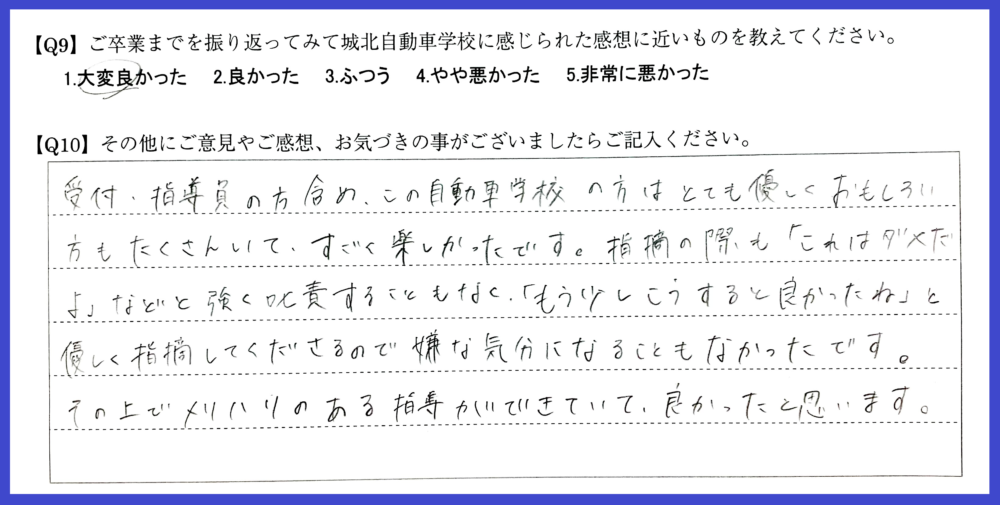 【Q9】ご卒業までを振り返ってみて城北自動車学校に感じられた感想に近いものを教えてください。
1.大変良かった 2.良かった 3.ふつう 4.やや悪かった 5.非常に悪かった
【Q10】その他にご意見やご感想、お気づきの事がございましたらご記入ください。
受付・指導員の方含め、この自動車学校の方はとても優しくおもしろい
方もたくさんいて、すごく楽しかったです。指摘の際も「これはダメだ
よ」などと強く叱責することもなく、「もう少しこうすると良かったね」と
優しく指摘してくださるので嫌な気分になることもなかったです。
その上でメリハリのある指導ができていて、良かったと思います。